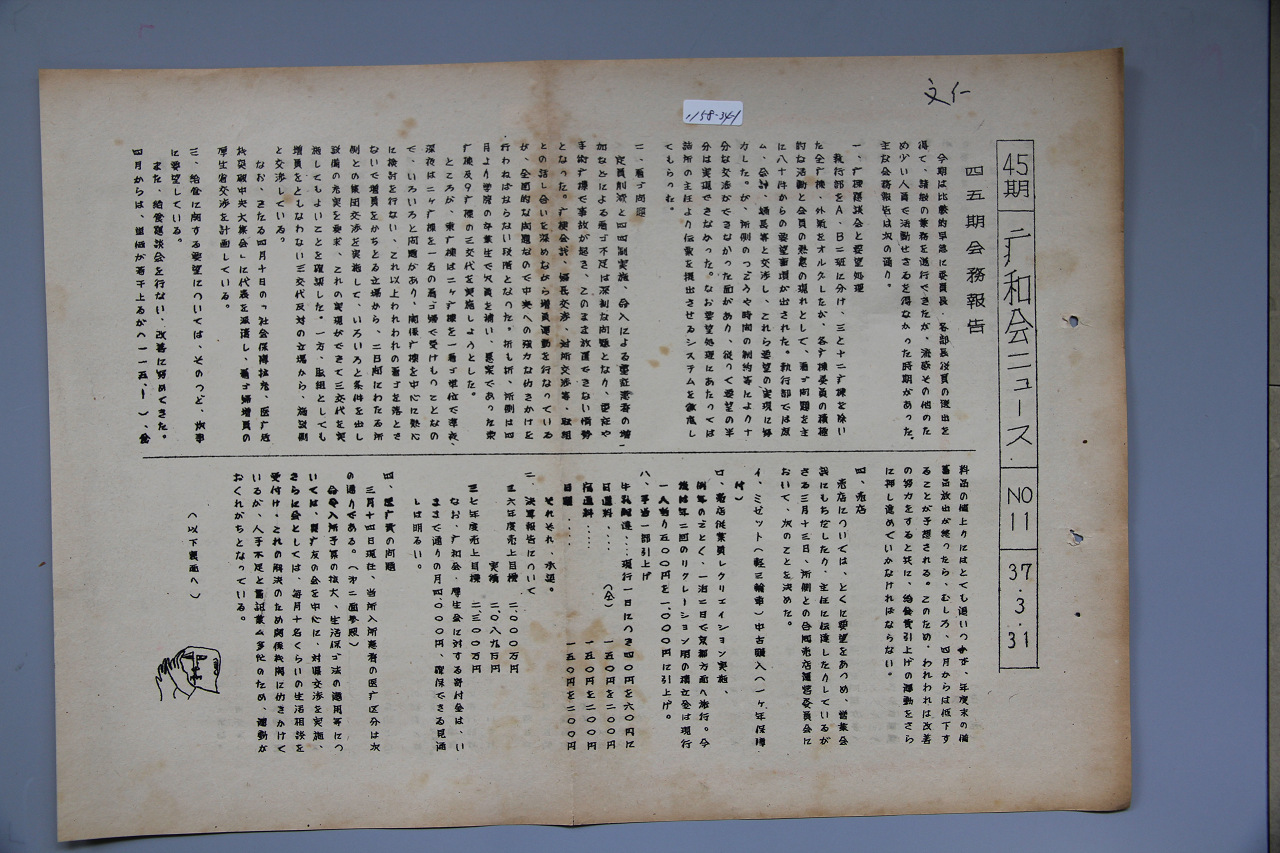 文仁
1158-34-1
45期 二广和会ニュース NO11 37.3.31
四五期会務報告
今期は比較的早急に委員長・各部長役員の選出を
得て、諸般の業務を遂行できたが、流感その他のた
め少い人員で活動せざるを得なかった時期があった。
主な会務報告は次の通り。
一、广棟懇談会と要望処理
執行部をA・B二班に分け、三と十二广棟を除い
た全广棟・外気をオルグしたが、各广棟委員の積極
的な活動と会員の熱意の現れとして、看ゴ問題を主
に八十件からの要望事項が出された。執行部では庶
ム、会計、婦長等と交渉し、これら要望の実現に努
力した。が、所側のつごうや時間の制約等により十
分な交渉ができなかった面があり、従って要望の半
分は実現できなかった。なお要望処理にあたっては
詰所の主任より伝票を提出させるシステムを徹底し
てもらった。
二、看ゴ問題
定員削減と四四制実施、合入による重症患者の増
加などによる看ゴ不足は深刻な問題となり、重症や
手術广棟で事故が起き、このまま放置できない情勢
となった。广棟会議、婦長交渉、対所交渉等、取組
との話し合いを深めながら増員運動を行なっている
が、全国的な問題なので中央への強力な働きかけを
行わねばならない段階となった。折も折、所側は四
月より学院の卒業生で欠員を補い、懸案であった東
广棟及9广棟の三交代を実施しようとした。
ところが、東广棟は二ヶ广棟を一看ゴ単位で準夜、
深夜は二ヶ广棟を一名の看ゴ婦で受けもつことなの
で、いろいろと問題があり、関係广棟を中心に熱心
に検討を行ない、これ以上われわれの看ゴを落とさ
ないで増員をかちとる立場から、二日間にわたる所
側との集団交渉を実施して、いろいろと条件を出し
設備の充実を要求、これの実現ができて三交代を実
施してもよいことを確認した。一方、取組としても
増員をともなわない三交代反対の立場から、施設側
と交渉している。
なお、きたる四月十日の「社会保障拡充、医广危
機突破中央大集会」に代表を派遣し、看ゴ婦増員の
厚生省交渉を計画している。
三、給食に関する要望については、そのつど、炊事
に要望している。
また、給食懇談会を行ない、改善に努めてきた。
四月からは、単価が若干上るが(一一五・)、食
料品の値上りにはとても追いつかず、年度末の備
蓄品放出が終ったら、むしろ、四月からは低下す
ることが予想される。このため、われわれは改善
の努力をすると共に、給食費引上げの運動をさら
に押し進めていかなければならない。
四、売店
売店については、とくに要望をあつめ、営業会
議にもちだしたり、主任に伝達したりしているが
さる三月十三日、所側との合同売店運営委員会に
おいて、次のことを決めた。
イ、ミゼット(軽三輪車)中古購入(一ヶ年保障
付)
ロ、売店従業員レクリエイション実施、
例年のごとく、一泊二日で京都方面へ旅行。今
後は年二回のリクレーション用の積立金は現行
一人当り五〇〇円を一、〇〇〇円に引上げ。
ハ、手当一部引上げ
牛乳配達……現行一日につき四〇円を六〇円に
日直料……(仝) 一五〇円を二〇〇円
宿直料…… 一五〇円を二〇〇円
日曜…… 一五〇円を二〇〇円
それぞれ、承認。
二、決算報告について
三六年度売上目標 二、〇〇〇万円
実績 二、〇八九万円
三七年度売上目標 二、三〇〇万円
なお、广和会・厚生会に対する寄付金は、い
ままで通りの月四〇、〇〇〇円、確保できる見通
しは明るい。
四、医广費の問題
三月十四日現在、当所入所患者の医广区分は次
の通りである。(第二面参照)
命令入所予算の拡大、生活保ゴ法の適用等につ
いては、異广友の会を中心に、対県交渉を実施、
さらに会としては、毎月十名くらいの生活相談を
受付け、これの解決のため関係機関に働きかけて
いるが、人手不足と書記業ム多忙のため、運動が
おくれがちとなっている。
(以下裏面へ)